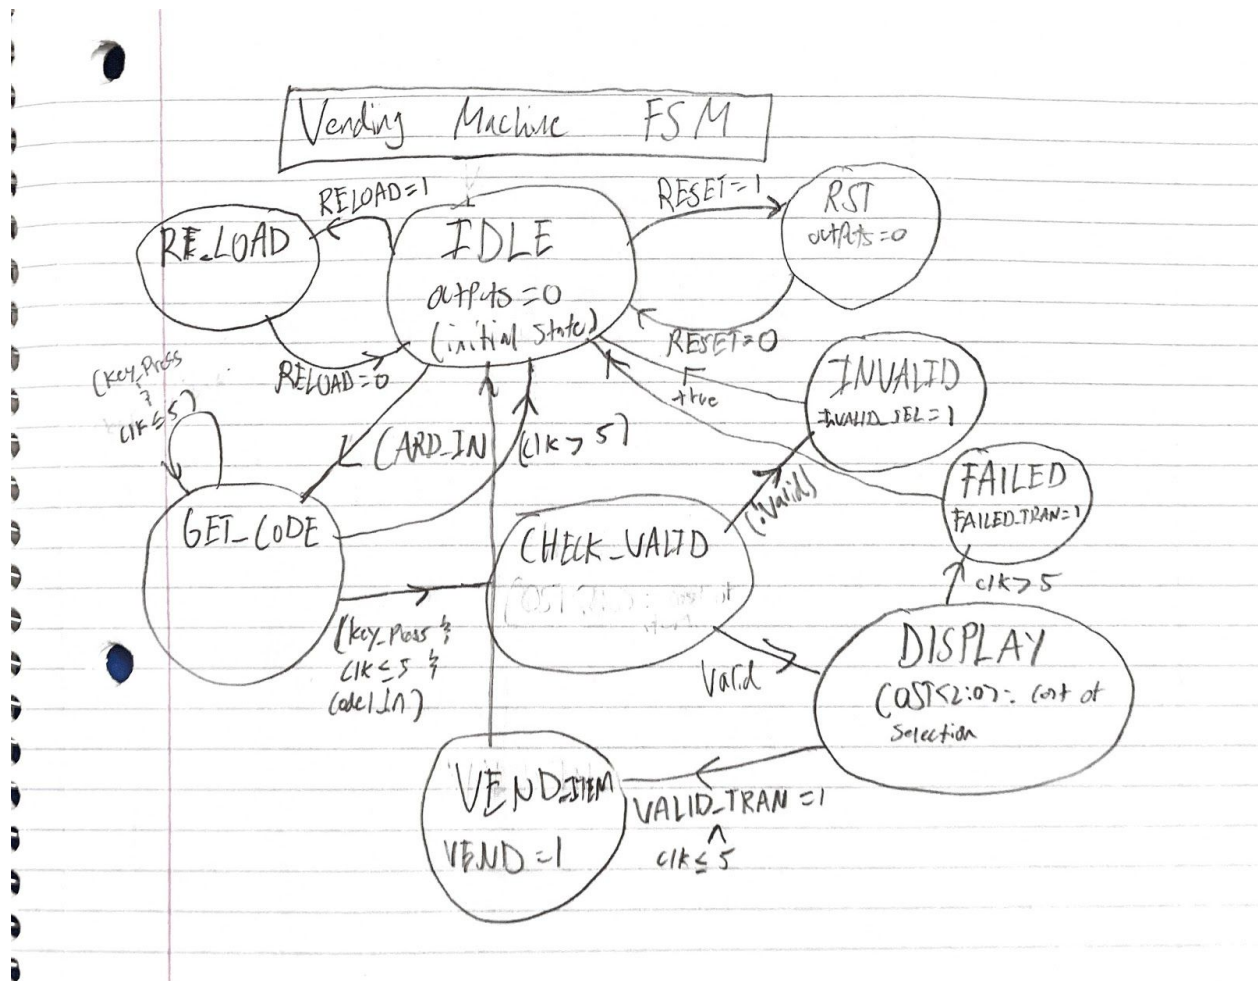 Vending Machine FSM
RELOAD=1
RE_LOAD
IDLE
outputs=0
(initial state)
RESET=1
RST
outputs=0
RESET=0
RELOAD=0
(key_Press
&
clk ≤ 5)
CARD_IN
(clk > 5)
true
INVALID
INVALID_SEL=1
(!valid)
FAILED
FAILED_TRAN=1
GET_CODE
CHECK_VALID
clk > 5
(key_Press &
clk ≤ 5 &
code1_in)
Valid
DISPLAY
COST<2:0>= cost of
selection
VEND_ITEM
VEND=1
VALID_TRAN=1
^
clk ≤ 5